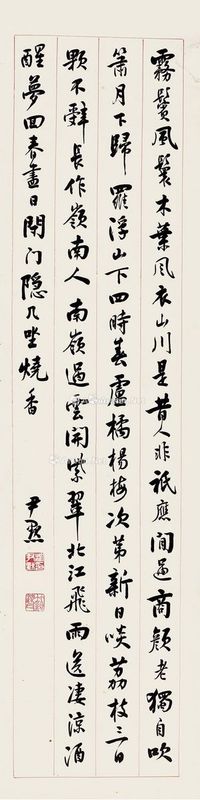 霧鬢風鬟木葉风衣山川是昔人非祇應閒過商顏老獨自吹
簫月下歸 羅浮山下四時春盧橘楊梅次第新日啖荔枝三百
顆不辭長作嶺南人 南嶺過雲開紫翠北江飛雨送淒涼酒
醒夢回春盡日閉门隐几坐燒香
尹默